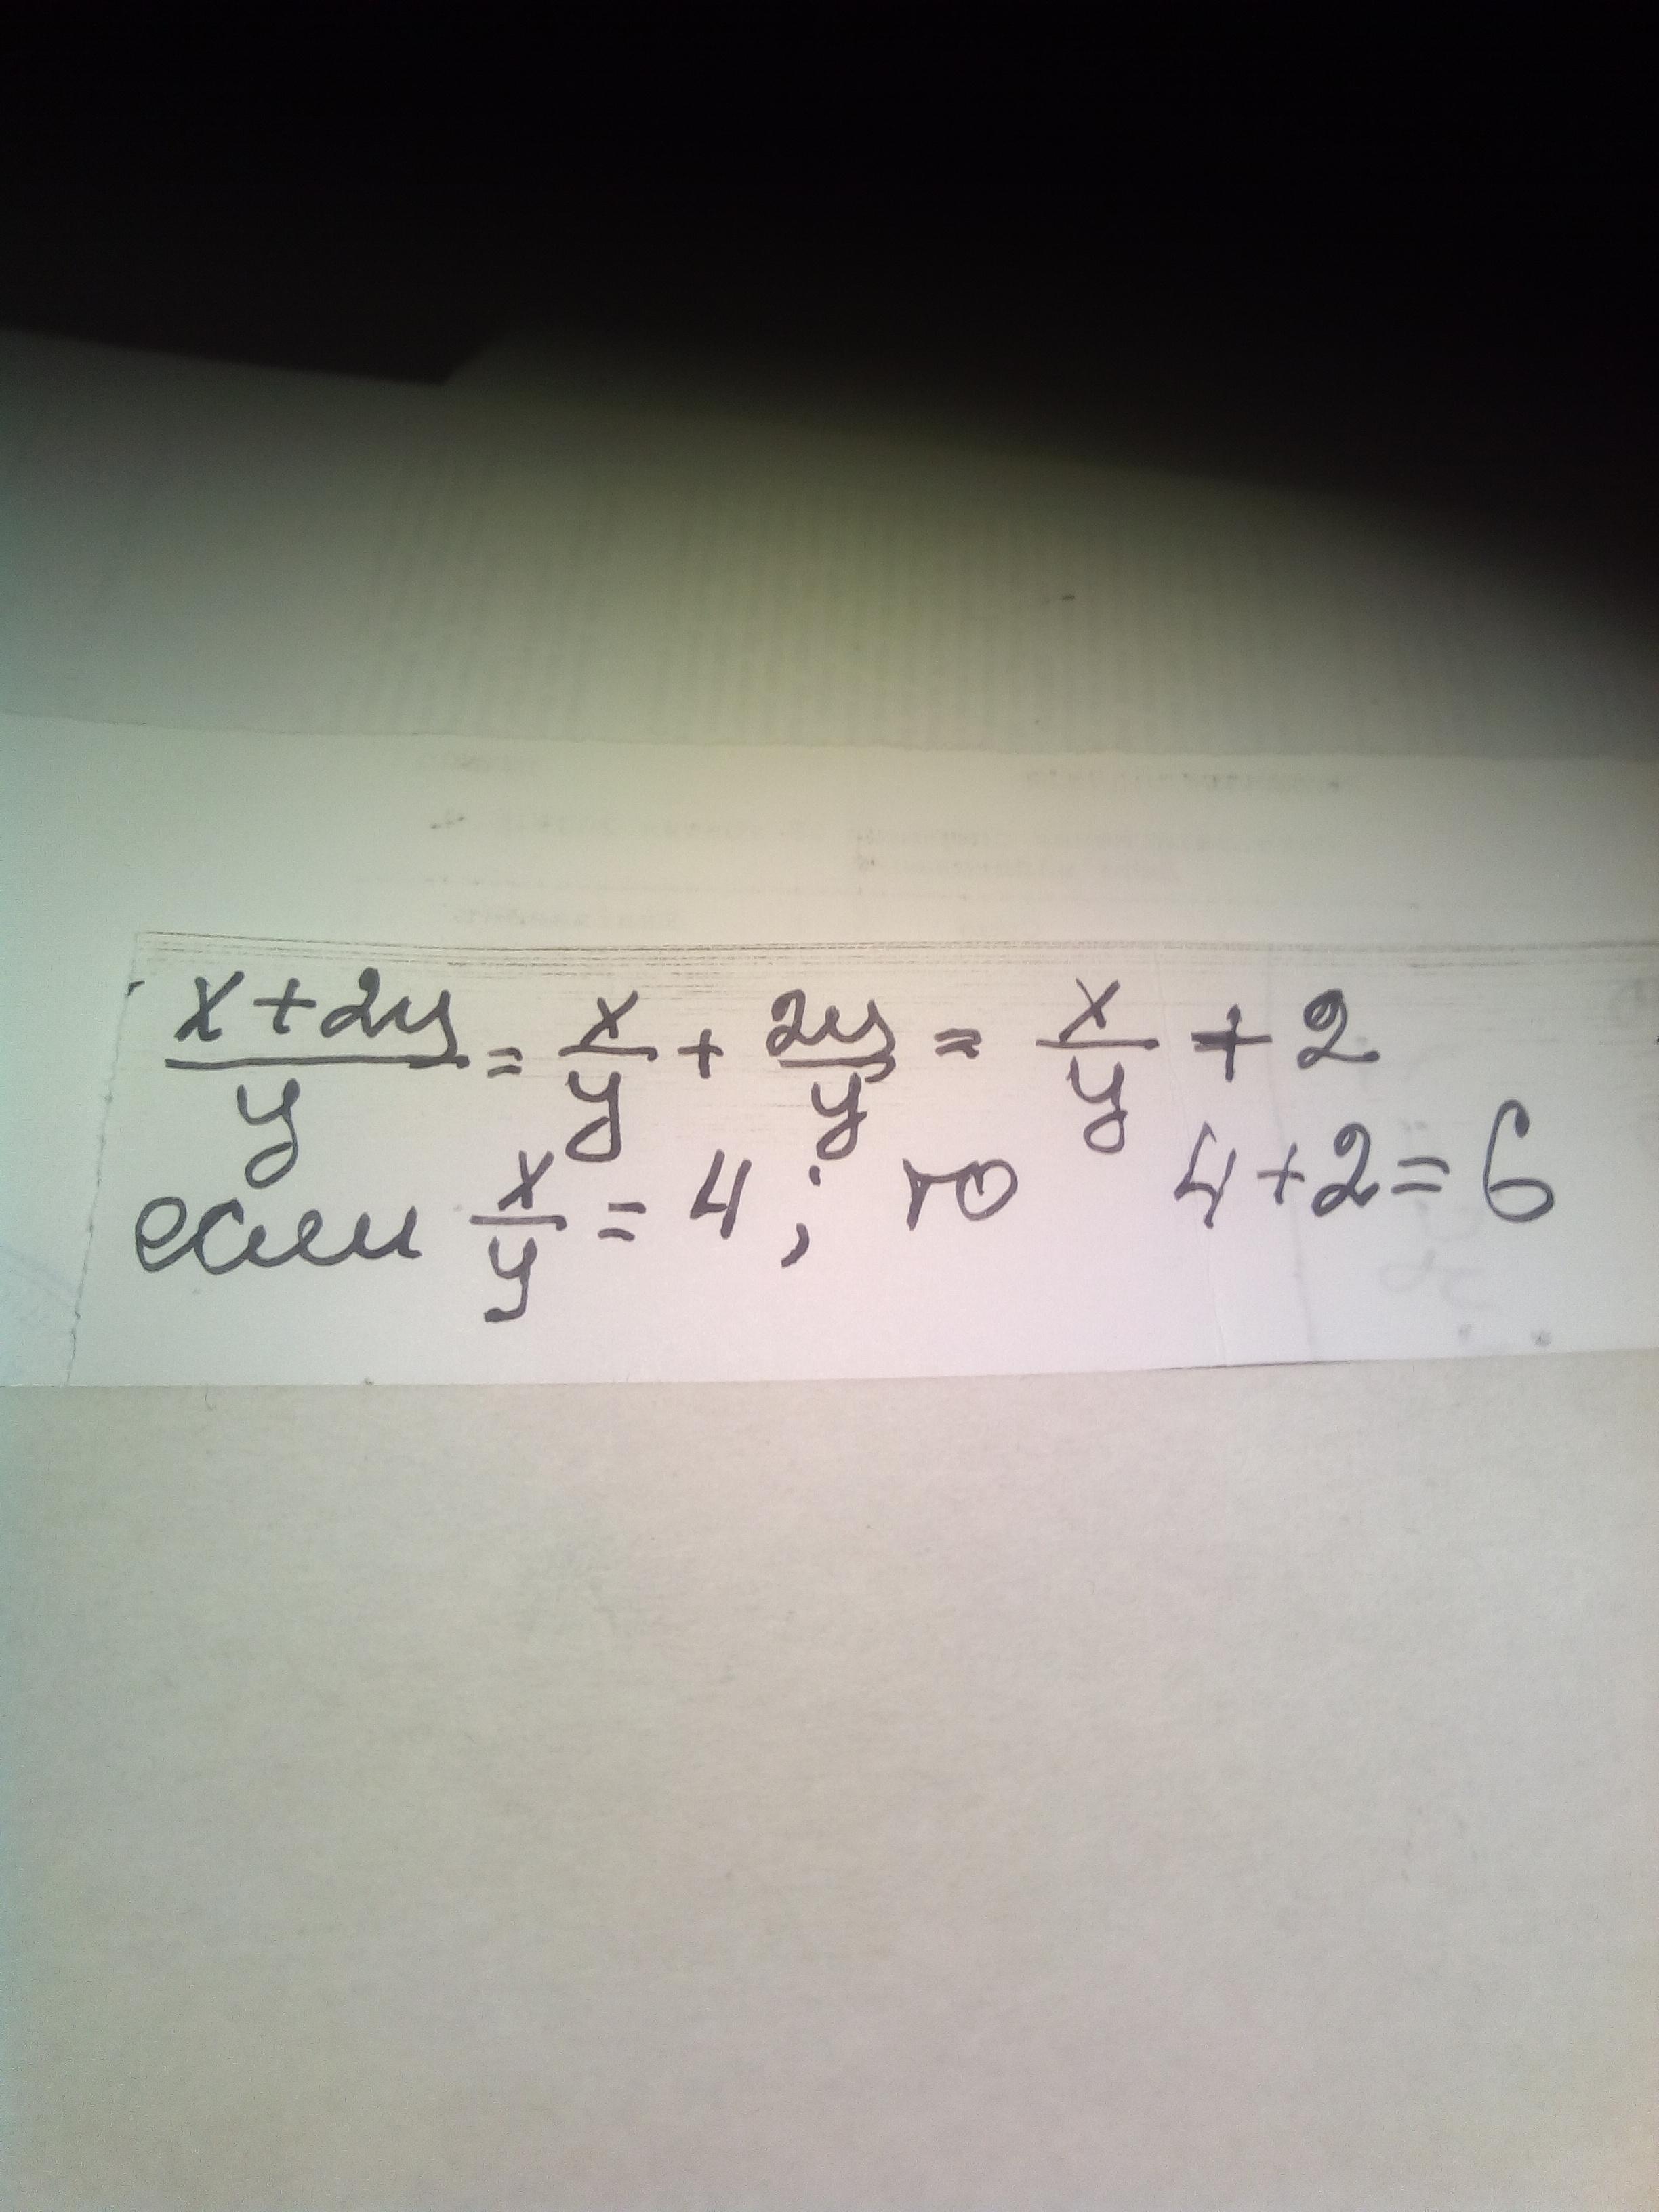 x+2y/y = x/y + 2y/y = x/y + 2
если x/y = 4; то 4+2=6